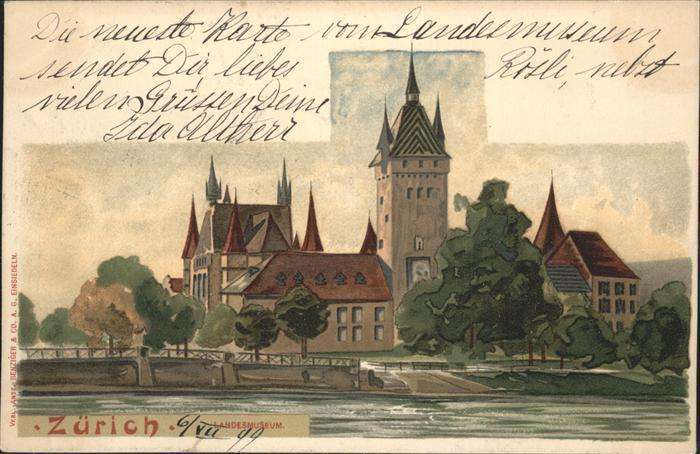 Die neueste Karte vom Landesmuseum
sendet Dir liebes Rösli, nebst
vielen Grüssen Deine
Ida Altherr
VERLAGSANST. BENZIGER & CO. A. G., EINSIEDELN.
· Zürich · 6/VII 99
LANDESMUSEUM.